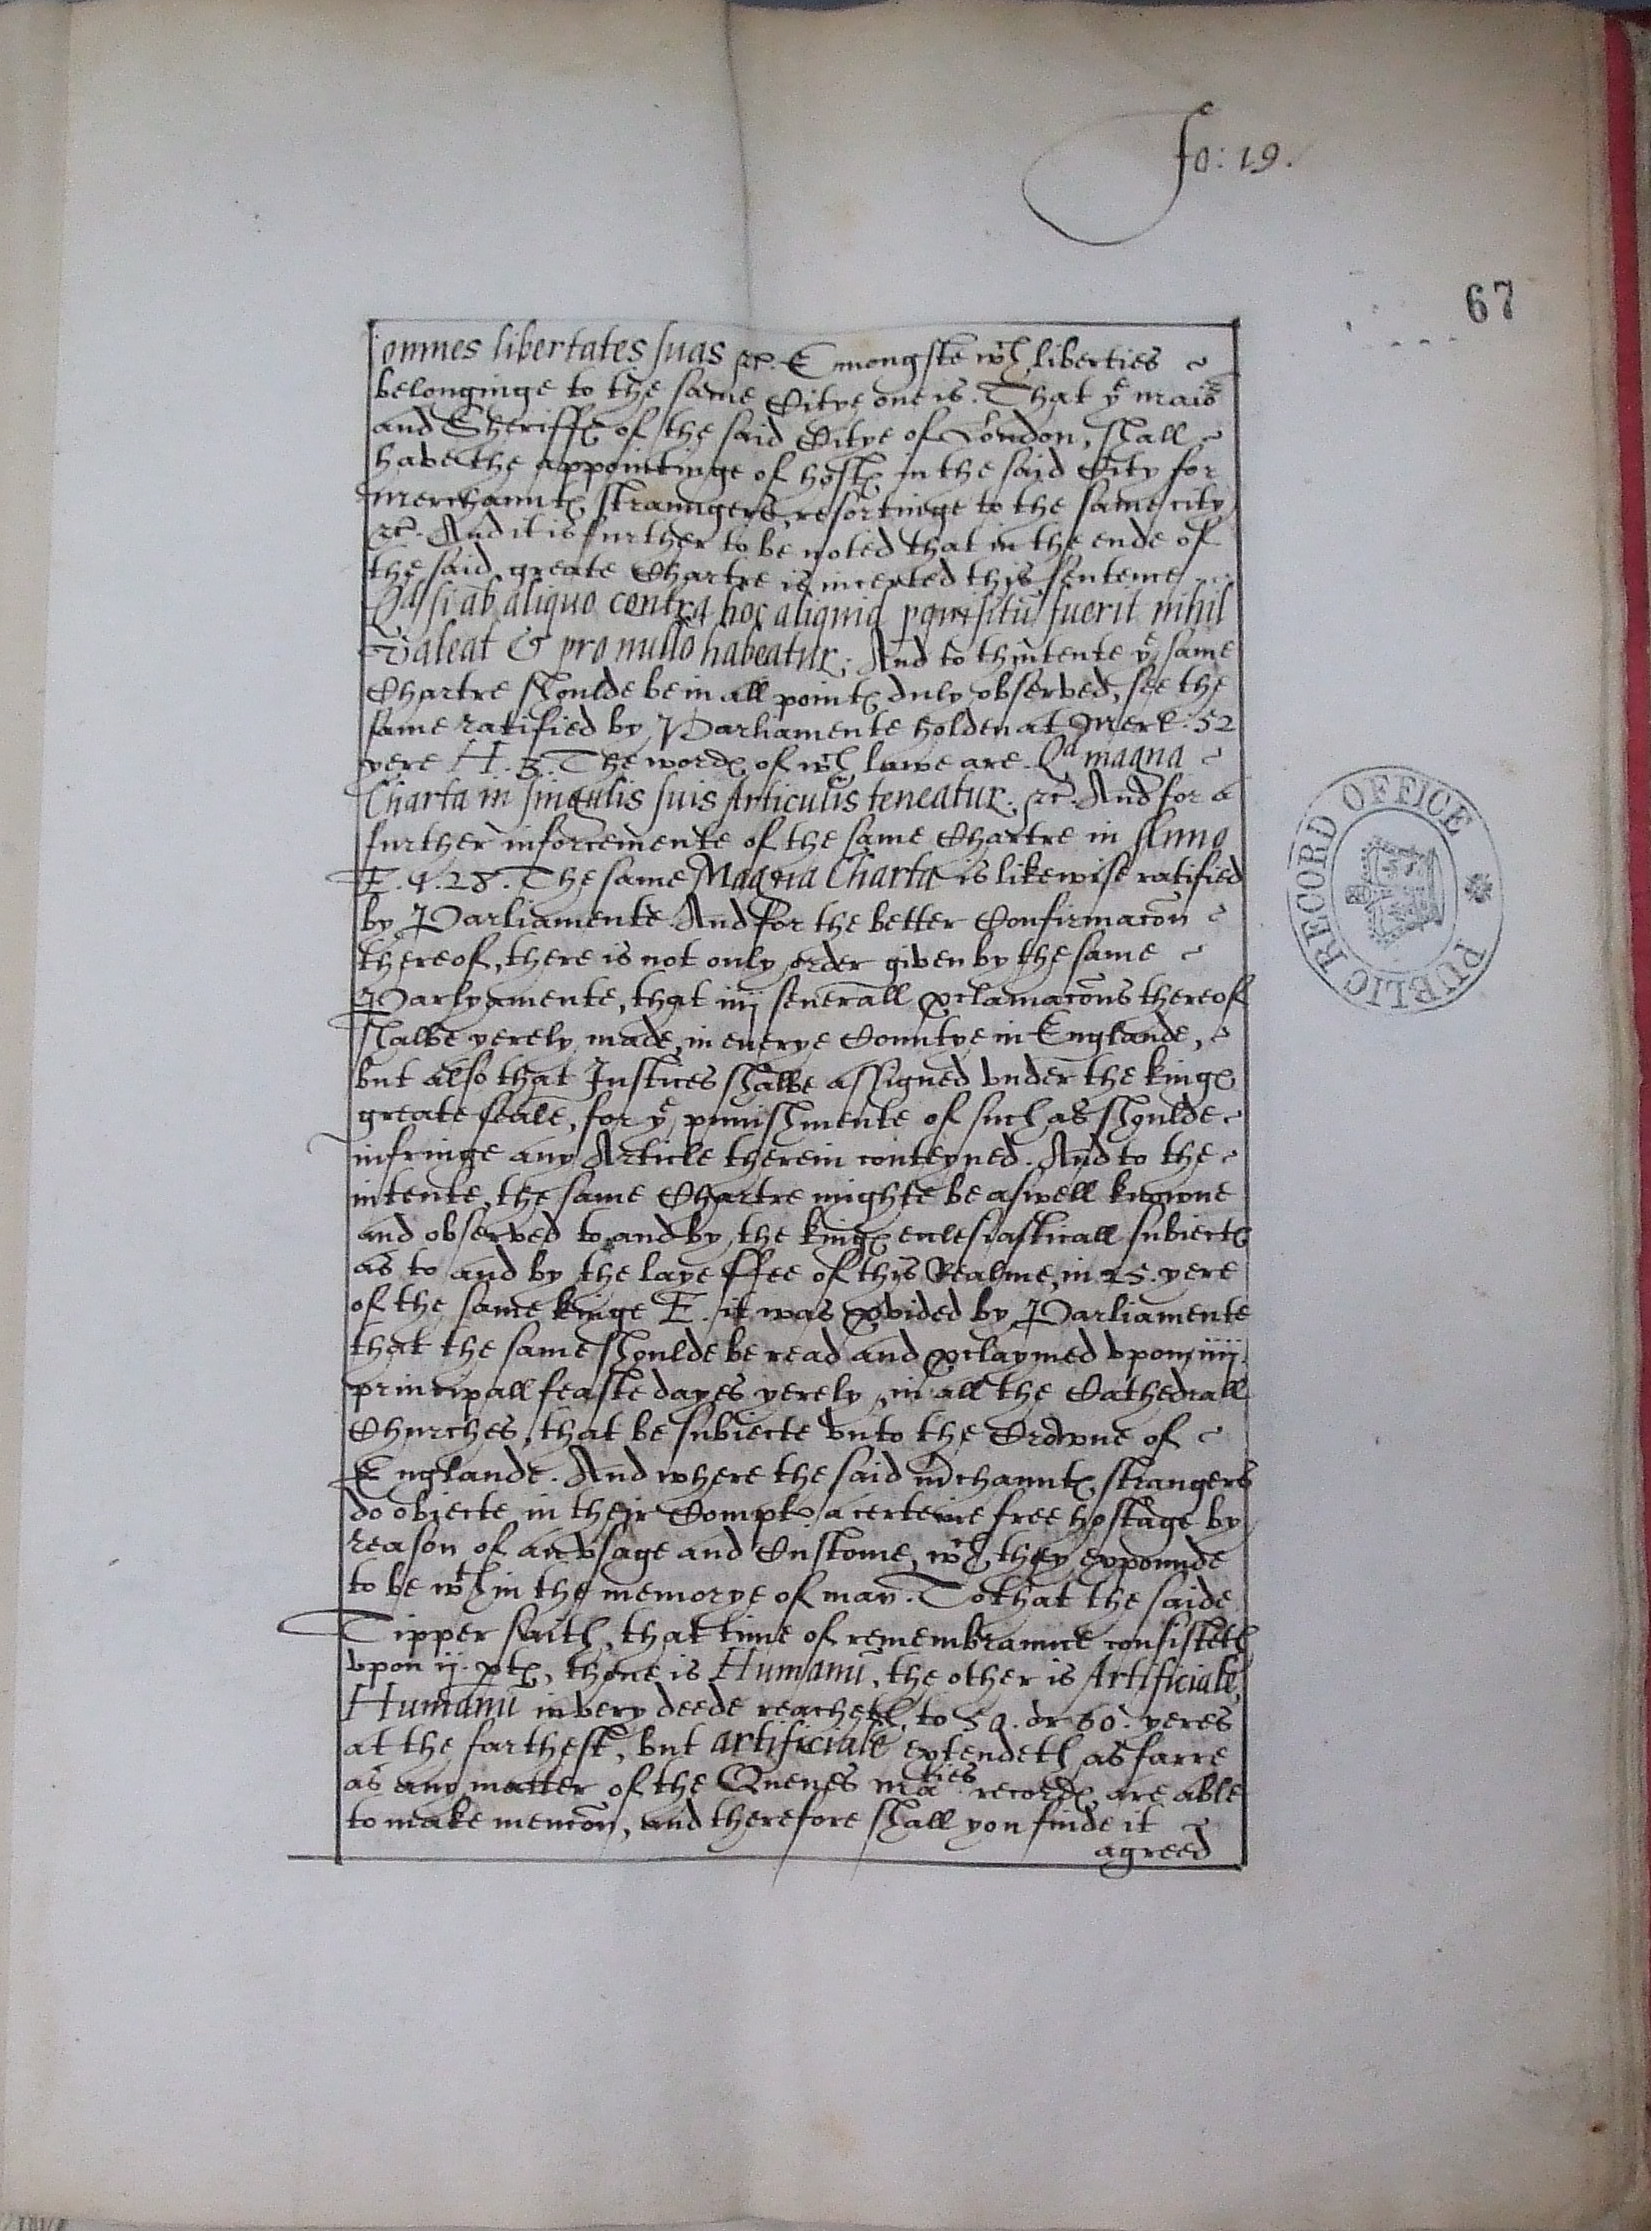 fo: 19.
67
omnes libertates suas &c. Emongste wch liberties
belonginge to the same Citye one is. That ye maior
and Sheriffes of the said Citye of London, shall
have the appointinge of hostes in the said City for
merchauntes straungers, resortinge to the same city
&c. And it is further to be noted that in the ende of
the said greate Chartre is incerted this sentence
Qd si ab aliquo contra hoc aliquid pquisitū fuerit nihil
valeat & pro nullo habeatur. And to thintente ye same
Chartre shoulde be in all pointes duly observed, see the
same ratified by Parliamente holden at Merl: 52
yere H. 3. The wordes of wch lawe are. Qd magna
Charta in singulis suis Articulis teneatur. &c. And for a
further inforcemente of the same Chartre in Anno
E. 1. 28. The same Magna Charta is likewise ratified
by Parliamente. And for the better Confirmacōn
thereof, there is not only order given by the same
Parlyamente, that iiij severall pclamacōns thereof
shalbe yerely made, in euerye Countye in Englande,
but also that Justices shalbe assigned vnder the kinges
greate seale, for ye punishmente of such as shoulde
infringe any Article therein conteyned. And to the
intente, the same Chartre mighte be aswell knowne
and observed to and by, the kinges eclesiasticall subiectes
as to and by the laye ffee of thys Realme, in 25. yere
of the same kinge E. it was pvided by Parliamente
that the same shoulde be read and pclaymed vpon iiij.
principall feaste dayes yerely, in all the Cathedrall
Churches, that be subiecte vnto the Crowne of
Englande. And where the said mchauntes strangers
do obiecte in their Complt a certeine free hostage by
reason of an vsage and Custome, wch they expounde
to be wth in the memorye of man. To that the saide
Tipper saith, that time of remembraunce consisteth
vpon ij. ptes, thone is Humanū, the other is Artificiale,
Humanū in very deede reacheth to 50. or 60. yeres
at the farthest, but artificiale extendeth as farre
as any matter of the Quenes maties recordes are able
to make mencōn, and therefore shall you finde it
agreed
PUBLIC RECORD OFFICE